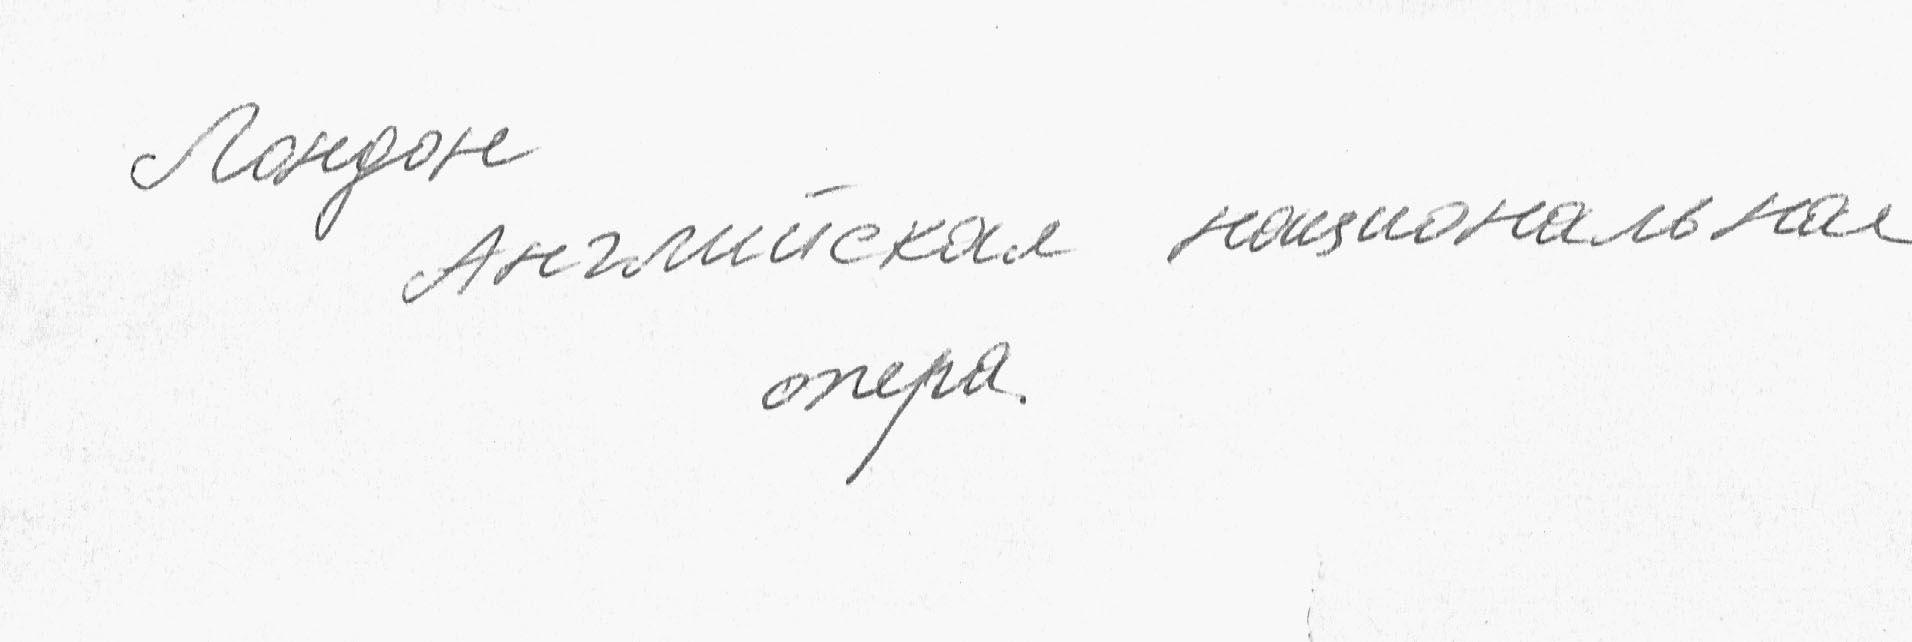 Лондон
Английская национальная
опера.